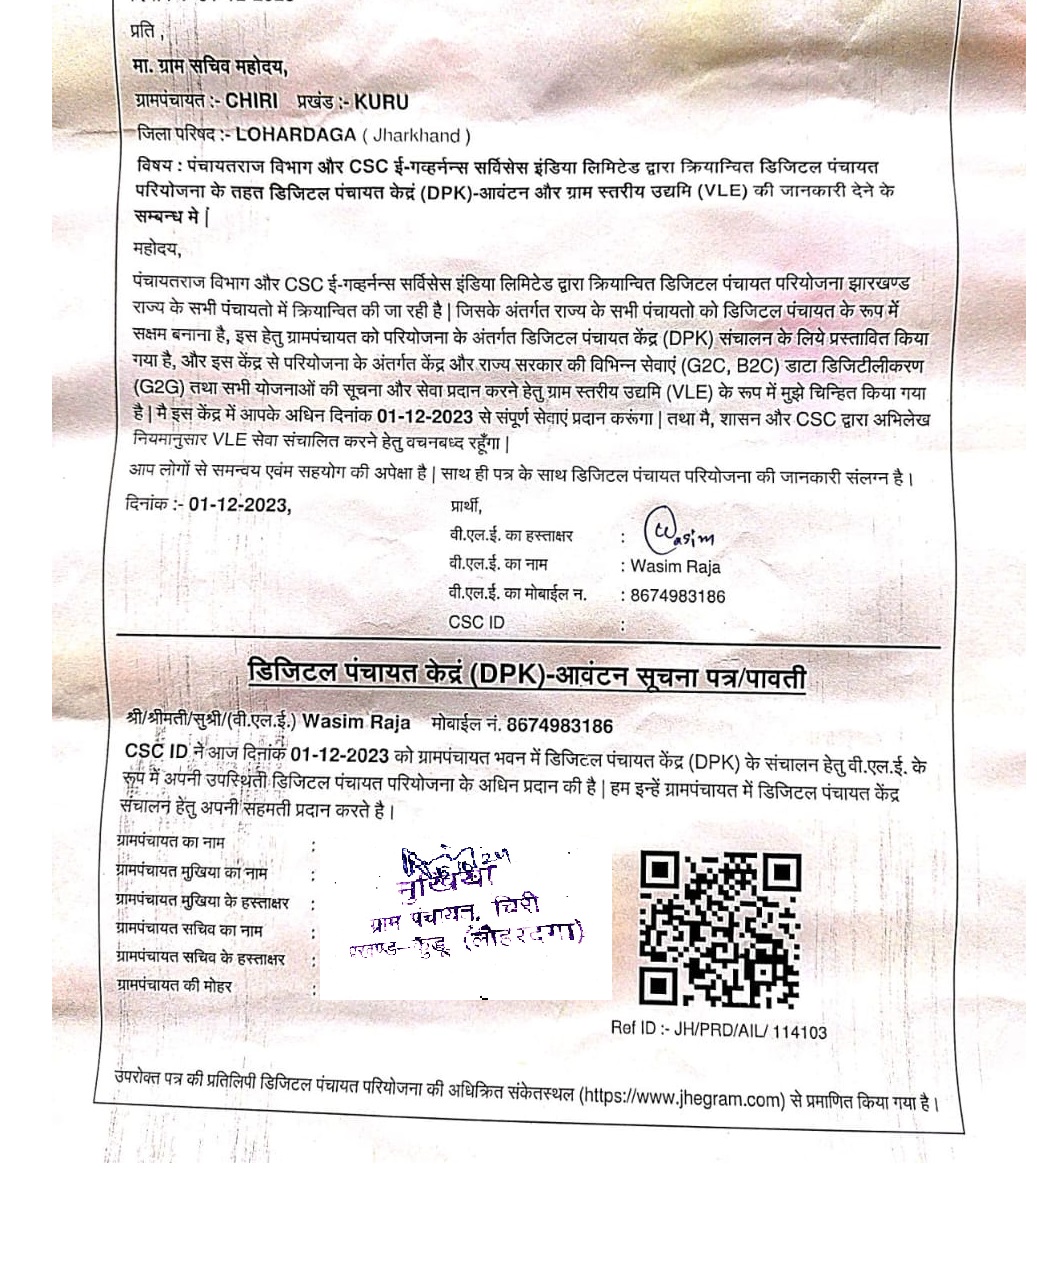 प्रति ,
मा. ग्राम सचिव महोदय,
ग्रामपंचायत :- CHIRI प्रखंड :- KURU
जिला परिषद :- LOHARDAGA ( Jharkhand )
विषय : पंचायतराज विभाग और CSC ई-गव्हर्नन्स सर्विसेस इंडिया लिमिटेड द्वारा क्रियान्वित डिजिटल पंचायत
परियोजना के तहत डिजिटल पंचायत केद्रं (DPK)-आवंटन और ग्राम स्तरीय उद्यमि (VLE) की जानकारी देने के
सम्बन्ध मे |
महोदय,
पंचायतराज विभाग और CSC ई-गव्हर्नन्स सर्विसेस इंडिया लिमिटेड द्वारा क्रियान्वित डिजिटल पंचायत परियोजना झारखण्ड
राज्य के सभी पंचायतो में क्रियान्वित की जा रही है | जिसके अंतर्गत राज्य के सभी पंचायतो को डिजिटल पंचायत के रूप में
सक्षम बनाना है, इस हेतु ग्रामपंचायत को परियोजना के अंतर्गत डिजिटल पंचायत केंद्र (DPK) संचालन के लिये प्रस्तावित किया
गया है, और इस केंद्र से परियोजना के अंतर्गत केंद्र और राज्य सरकार की विभिन्न सेवाएं (G2C, B2C) डाटा डिजिटीलीकरण
(G2G) तथा सभी योजनाओं की सूचना और सेवा प्रदान करने हेतु ग्राम स्तरीय उद्यमि (VLE) के रूप में मुझे चिन्हित किया गया
है | मै इस केंद्र में आपके अधिन दिनांक 01-12-2023 से संपूर्ण सेवाएं प्रदान करूंगा | तथा मै, शासन और CSC द्वारा अभिलेख
नियमानुसार VLE सेवा संचालित करने हेतु वचनबध्द रहूँगा |
आप लोगों से समन्वय एवंम सहयोग की अपेक्षा है | साथ ही पत्र के साथ डिजिटल पंचायत परियोजना की जानकारी संलग्न है।
दिनांक :- 01-12-2023,
प्रार्थी,
वी.एल.ई. का हस्ताक्षर : Wasim
वी.एल.ई. का नाम : Wasim Raja
वी.एल.ई. का मोबाईल न. : 8674983186
CSC ID :
डिजिटल पंचायत केद्रं (DPK)-आवंटन सूचना पत्र/पावती
श्री/श्रीमती/सुश्री/(वी.एल.ई.) Wasim Raja मोबाईल नं. 8674983186
CSC ID ने आज दिनांक 01-12-2023 को ग्रामपंचायत भवन में डिजिटल पंचायत केंद्र (DPK) के संचालन हेतु वी.एल.ई. के
रूप में अपनी उपस्थिती डिजिटल पंचायत परियोजना के अधिन प्रदान की है | हम इन्हें ग्रामपंचायत में डिजिटल पंचायत केंद्र
संचालन हेतु अपनी सहमती प्रदान करते है |
ग्रामपंचायत का नाम :
ग्रामपंचायत मुखिया का नाम :
ग्रामपंचायत मुखिया के हस्ताक्षर :
ग्रामपंचायत सचिव का नाम :
ग्रामपंचायत सचिव के हस्ताक्षर :
ग्रामपंचायत की मोहर :
मुखिया
ग्राम पंचायत, चिरी
प्रखण्ड-कुडू (लोहरदगा)
Ref ID :- JH/PRD/AIL/ 114103
उपरोक्त पत्र की प्रतिलिपी डिजिटल पंचायत परियोजना की अधिक्रित संकेतस्थल (https://www.jhegram.com) से प्रमाणित किया गया है।